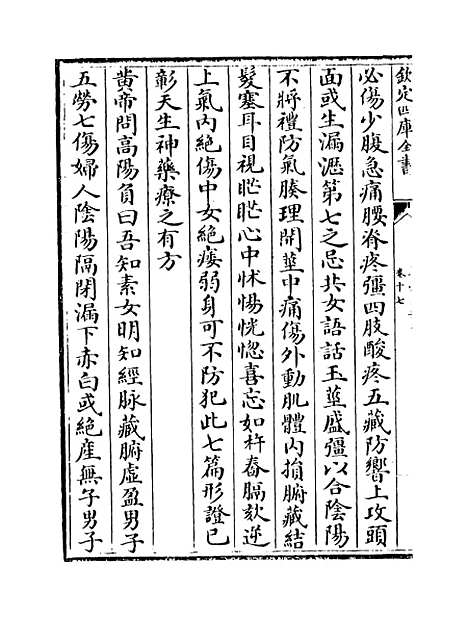 欽定四庫全書
卷十七
必傷少腹急痛腰脊疼彊四肢酸疼五藏防響上攻頭
面或生漏瀝第七之忌共女語話玉莖盛彊以合陰陽
不將禮防氣腠理開莖中痛傷外動肌體内損腑藏結
髮塞耳目視䀮䀮心中怵惕恍惚喜忘如杵舂膈欬逆
上氣内絶傷中女絶痿弱身可不防犯此七篇形證已
彰天生神藥療之有方
黄帝問高陽負曰吾知素女明知經脉藏腑虚盈男子
五勞七傷婦人陰陽隔閉漏下赤白或絶産無子男子